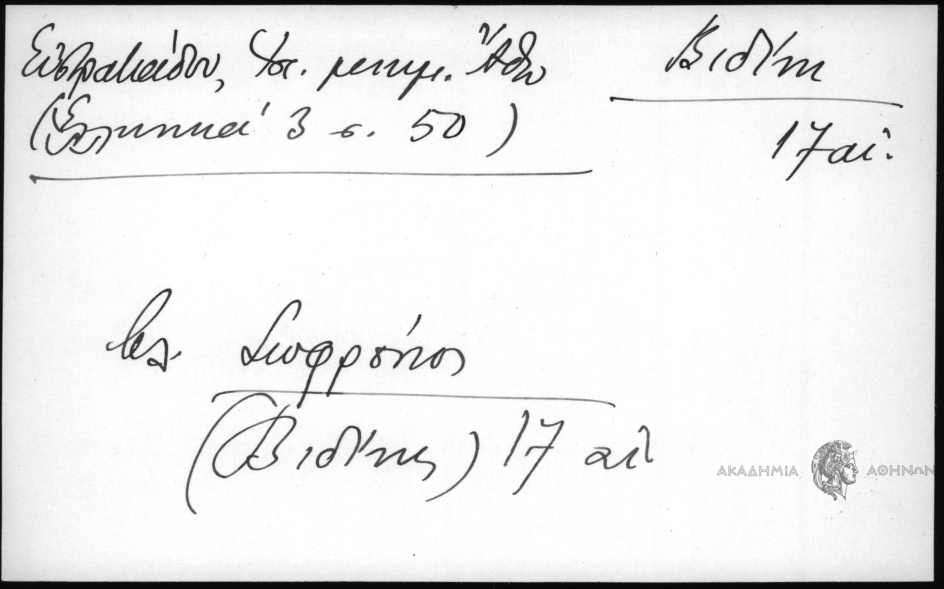 Εὐστρατιάδου, Ἱστ. μνημ. Ἄθω
(Ἑλληνικά 3 σ. 50)
Βιδίνη
17 αἰ.
βλ. Σωφρόνιος
(Βιδίνης) 17 αἰ
ΑΚΑΔΗΜΙΑ ΑΘΗΝΩΝ